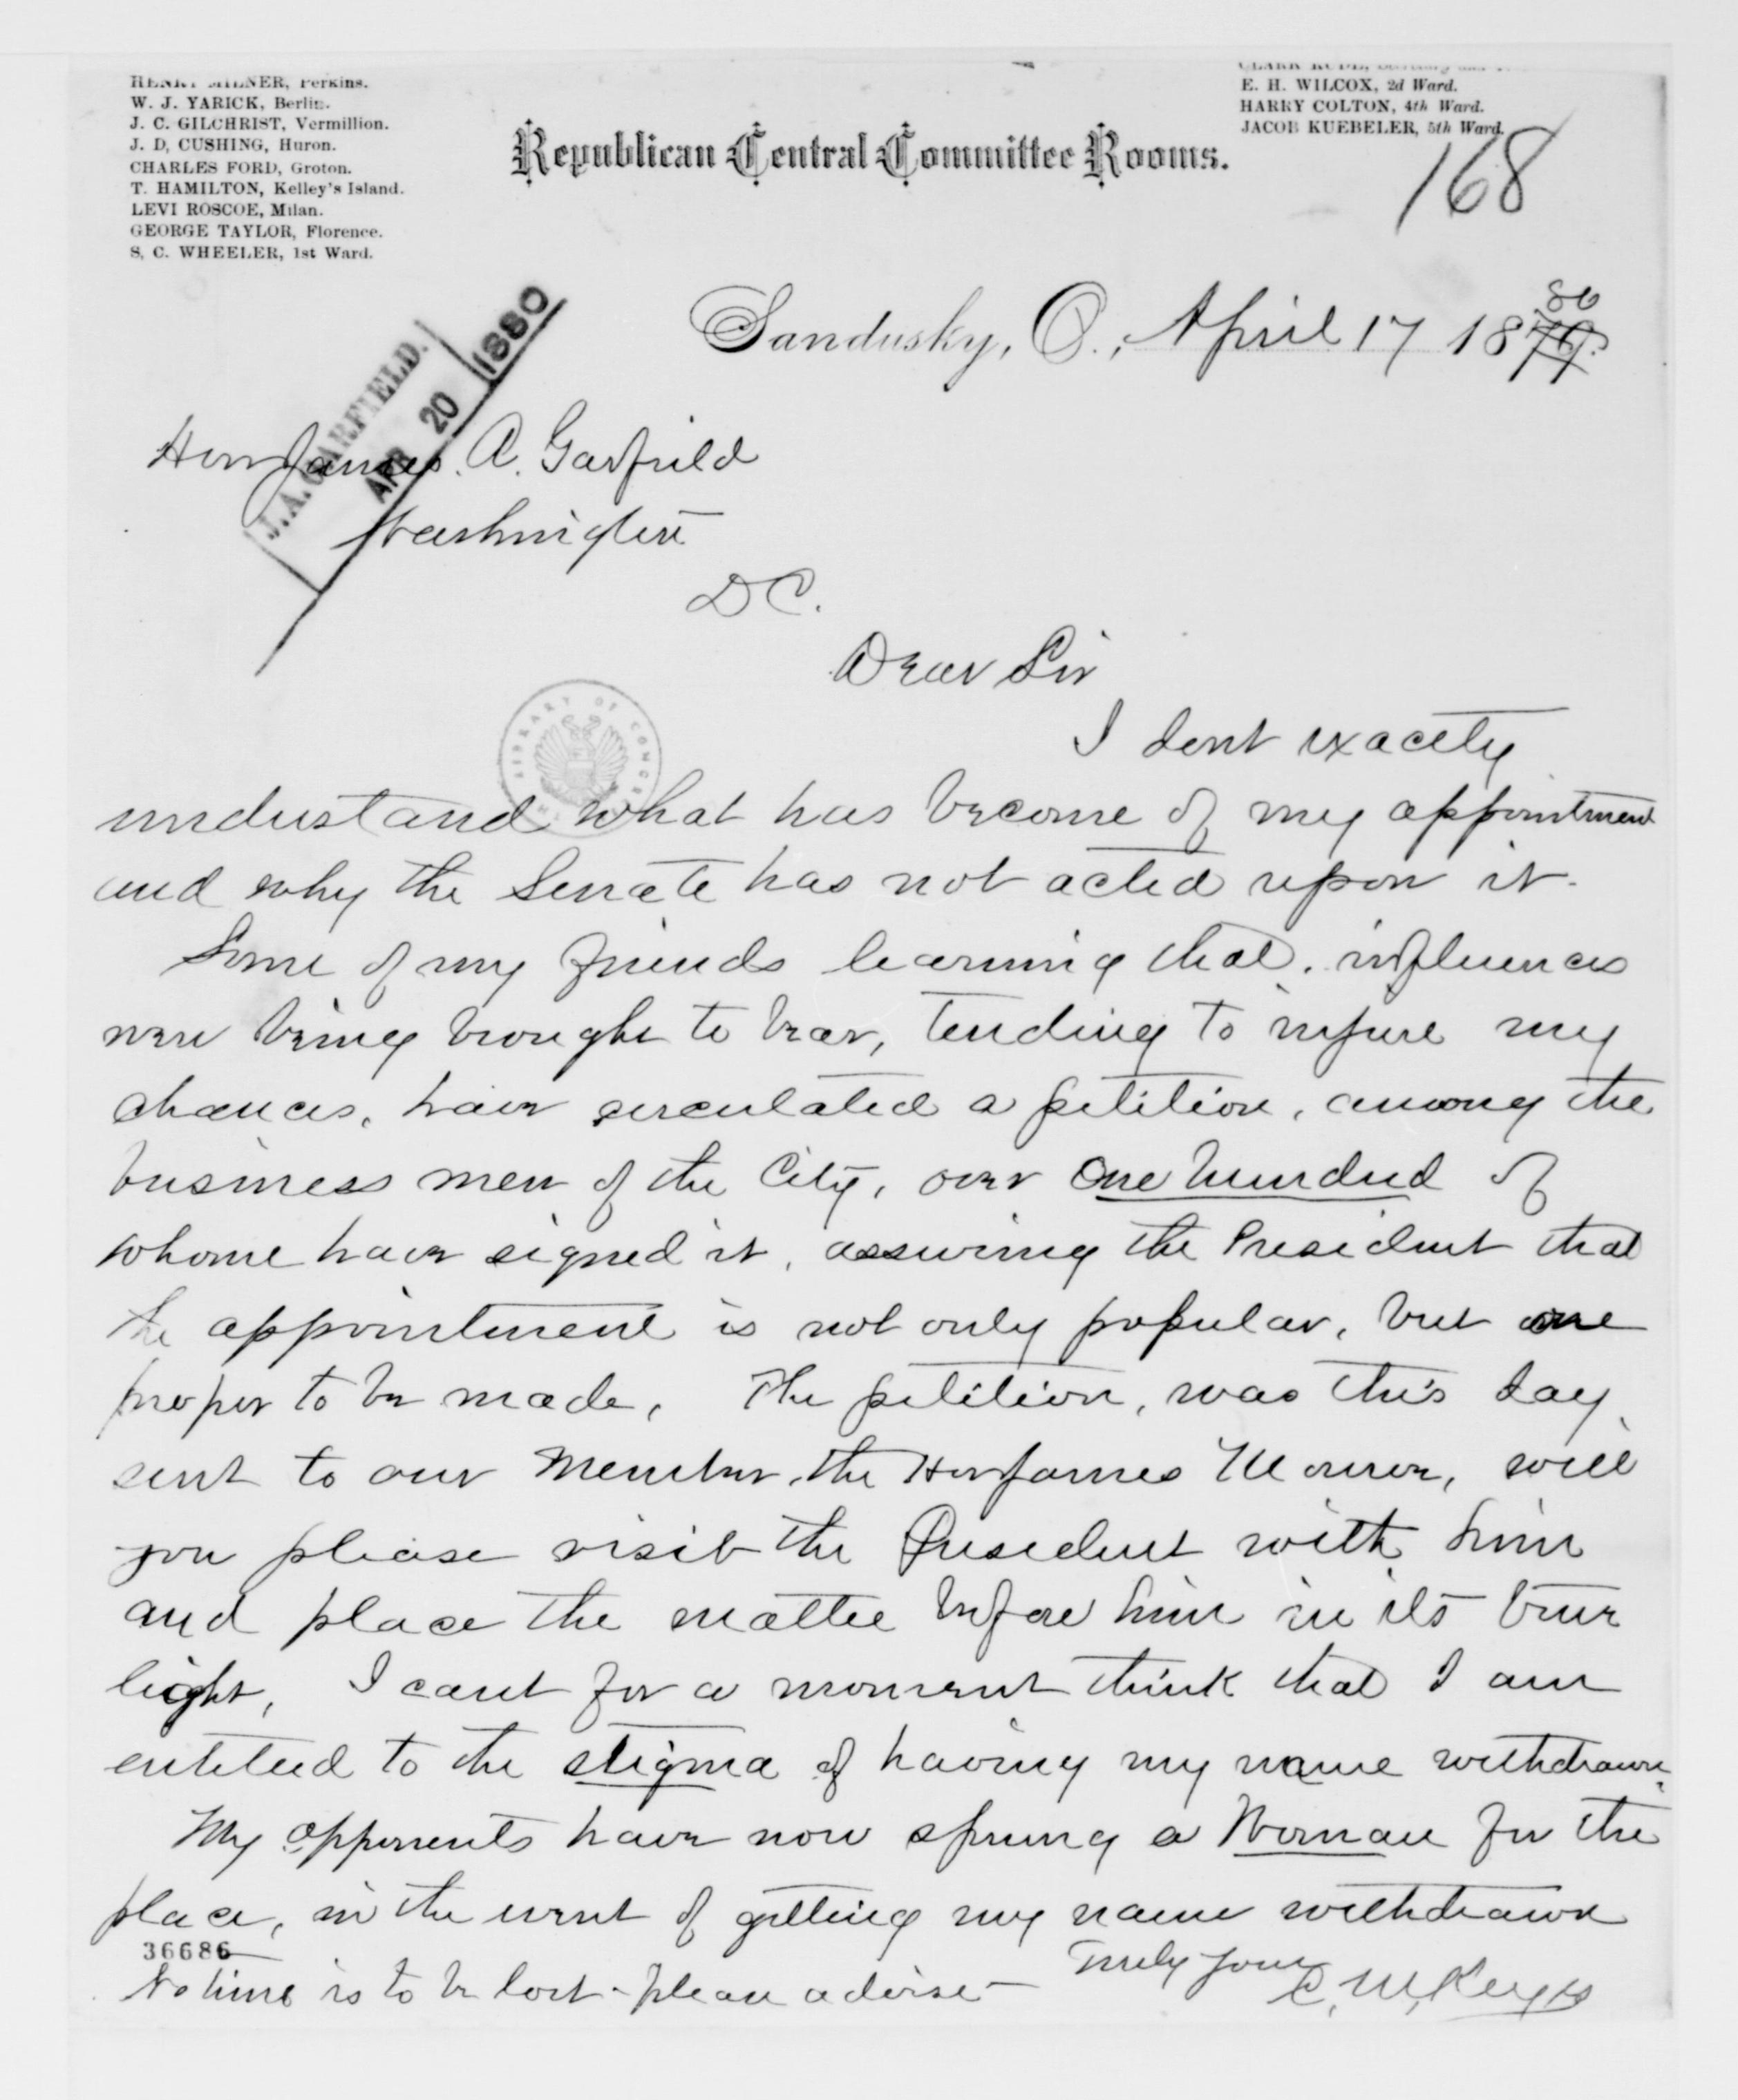 HENRY MILNER, Perkins.
W. J. YARICK, Berlin.
J. C. GILCHRIST, Vermillion.
J. D, CUSHING, Huron.
CHARLES FORD, Groton.
T. HAMILTON, Kelley's Island.
LEVI ROSCOE, Milan.
GEORGE TAYLOR, Florence.
S. C. WHEELER, 1st Ward.
Republican Central Committee Rooms.
CLARK RUDE,
E. H. WILCOX, 2d Ward.
HARRY COLTON, 4th Ward.
JACOB KUEBELER, 5th Ward.
168
Sandusky, O., April 17 1879.
80
J. A. GARFIELD.
APR 20 1880
Hon James. A. Garfield
Washington
D C.
Dear Sir
LIBRARY OF CONGRESS
I dont exactly
understand what has become of my appointment
and why the Senate has not acted upon it.
Some of my friends learning that, influences
were being brought to bear, tending to injure my
chances, have circulated a petition, among the
business men of the City, over One hundred of
whome have signed it, assuring the President that
the appointment is not only popular, but one
proper to be made, The petition, was this day
sent to our Member, the Hon James Monroe, will
you please visit the President with him
and place the matter before him in its true
light, I cant for a moment think that I am
entitled to the stigma of having my name withdrawn.
My opponents have now sprung a Woman for the
place, in the event of getting my name withdrawn
36686
No time is to be lost - please advise -
Truly yours
C. M. Keyes